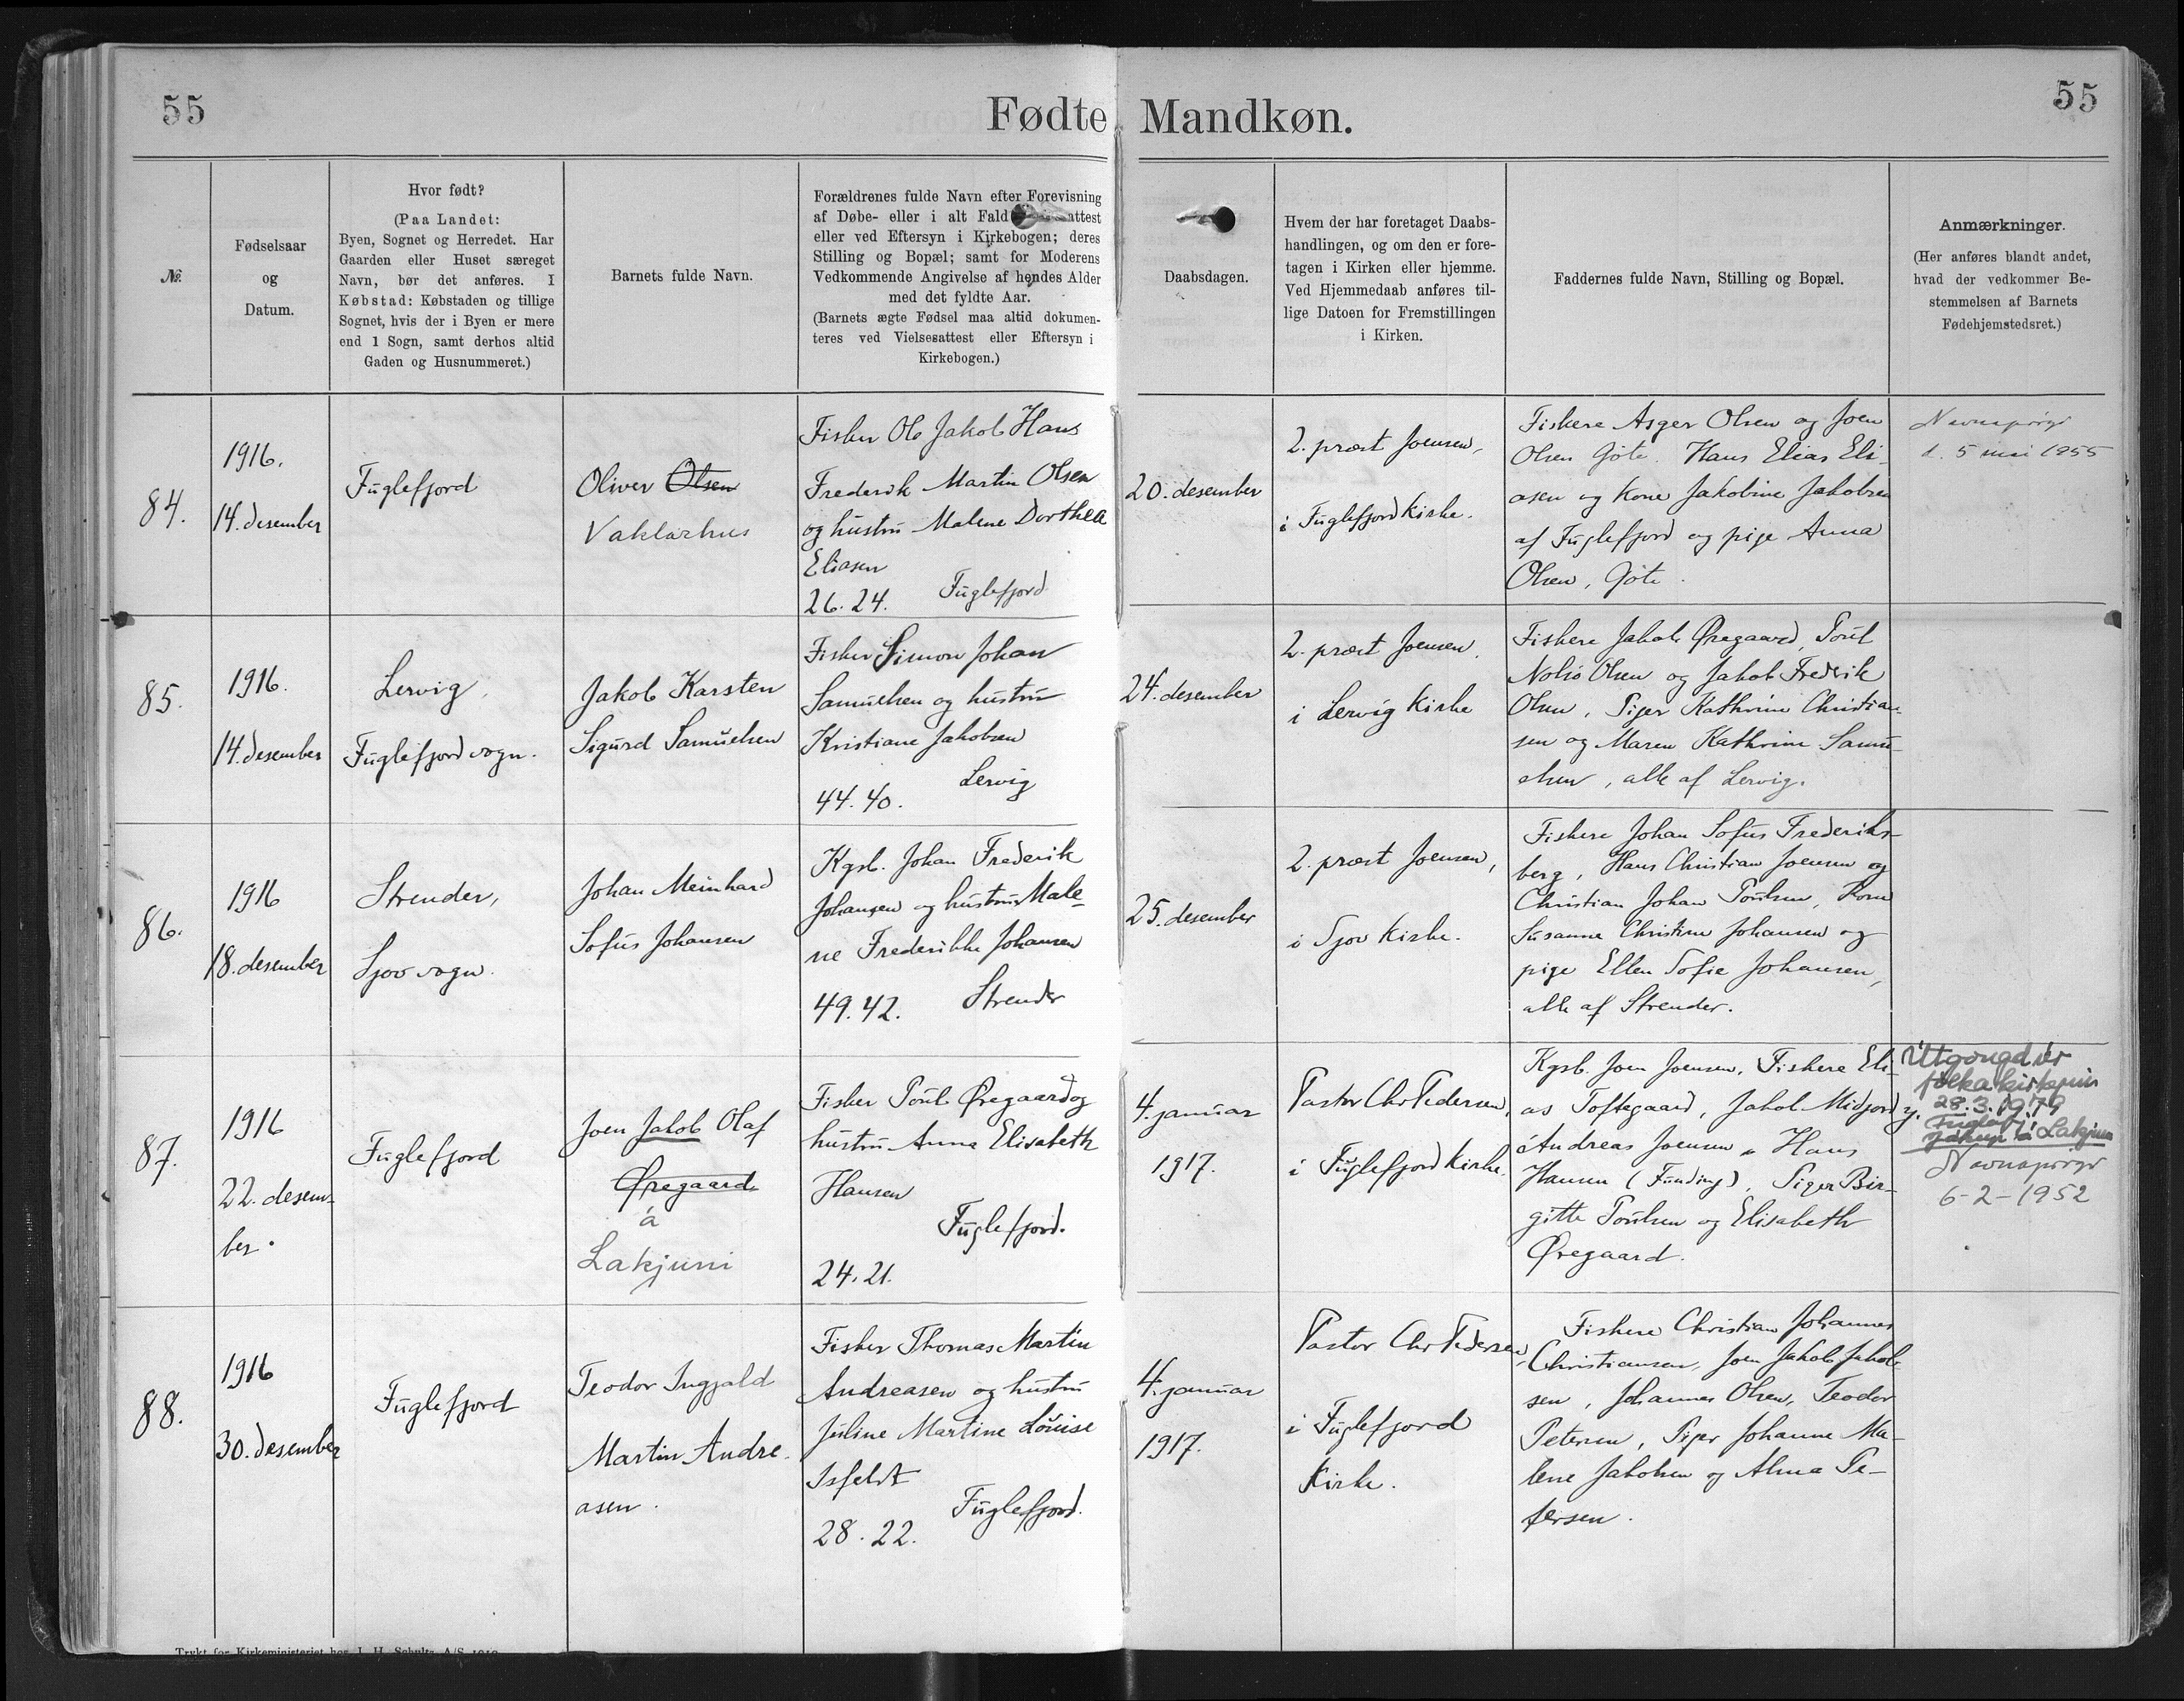 55
Fødte Mandkøn.
55
№
Fødselsaar
og
Datum.
Hvor født?
(Paa Landet:
Byen, Sognet og Herredet. Har
Gaarden eller Huset særeget
Navn, bør det anføres. I
Købstad: Købstaden og tillige
Sognet, hvis der i Byen er mere
end 1 Sogn, samt derhos altid
Gaden og Husnummeret.)
Barnets fulde Navn.
Forældrenes fulde Navn efter Forevisning
af Døbe- eller i alt Fald attest
eller ved Eftersyn i Kirkebogen; deres
Stilling og Bopæl; samt for Moderens
Vedkommende Angivelse af hendes Alder
med det fyldte Aar.
(Barnets ægte Fødsel maa altid dokumen-
teres ved Vielsesattest eller Eftersyn i
Kirkebogen.)
Daabsdagen.
Hvem der har foretaget Daabs-
handlingen, og om den er fore-
tagen i Kirken eller hjemme.
Ved Hjemmedaab anføres til-
lige Datoen for Fremstillingen
i Kirken.
Faddernes fulde Navn, Stilling og Bopæl.
Anmærkninger.
(Her anføres blandt andet,
hvad der vedkommer Be-
stemmelsen af Barnets
Fødehjemstedsret.)
84.
1916.
14. desember
Fuglefjord
Oliver Olsen
Vaklarhus
Fisker Ole Jakob Hans
Frederik Martin Olsen
og hustru Malene Dorthea
Eliasen
26. 24. Fuglefjord
20. desember
2. præst Joensen,
i Fuglefjord kirke.
Fiskere Asger Olsen og Joen
Olsen Gøte. Hans Elias Eli-
asen og kone Jakobine Jakobsen
af Fuglefjord og pige Anna
Olsen, Gøte.
Navnaprógv
d. 5 mai 1955
85.
1916.
14. desember
Lervig,
Fuglefjord sogn.
Jakob Karsten
Sigurd Samuelsen
Fisker Simon Johan
Samuelsen og hustru
Kristiane Jakobsen
Lervig
44. 40.
24. desember
2. præst Joensen,
i Lervig kirke
Fiskere Jakob Øregaard, Poul
Nolsø Olsen og Jakob Fredrik
Olsen, Piger Kathrine Christian-
sen og Maren Kathrine Samu-
elsen, alle af Lervig.
86.
1916
18. desember
Strender,
Sjov sogn.
Johan Meinhard
Sofus Johansen
Kgsb. Johan Frederik
Johansen og hustru Male-
ne Frederikke Johansen
49. 42. Strender
25. desember
2. præst Joensen,
i Sjov kirke.
Fiskere Johan Sofus Frederiks-
berg, Hans Christian Joensen og
Christian Johan Poulsen, Kone
Susanne Christine Johansen og
pige Ellen Sofie Johansen,
alle af Strender.
87.
1916
22. desem-
ber.
Fuglefjord
Joen Jakob Olaf
Øregaard
á
Lakjuni
Fisker Poul Øregaard og
hustru Anna Elisabeth
Hansen
Fuglefjord.
24. 21.
4. januar
1917.
Pastor Chr Pedersen,
i Fuglefjord kirke.
Kgsb. Joen Joensen, Fiskere Eli-
as Toftegaard, Jakob Midjord,
Andreas Joensen, Hans
Hansen (Funding), Piger Bir-
gitte Poulsen og Elisabeth
Øregaard.
Útgongd úr
fólkakirkjuni
28.3.1979
Jákup á Lakjuni
Navnaprógv
6-2-1952
88.
1916
30. desember
Fuglefjord
Teodor Ingjald
Martin Andre-
asen.
Fisker Thomas Martin
Andreasen og hustru
Juline Martine Louise
Isfeldt
Fuglefjord.
28. 22.
4. januar
1917.
Pastor Chr Pedersen,
i Fuglefjord
Kirke.
Fiskere Christian Johannes
Christiansen, Joen Jakob Jakob-
sen, Johannes Olsen, Teodor
Petersen, Piger Johanne Ma-
lene Jakobsen og Alma Pe-
tersen.